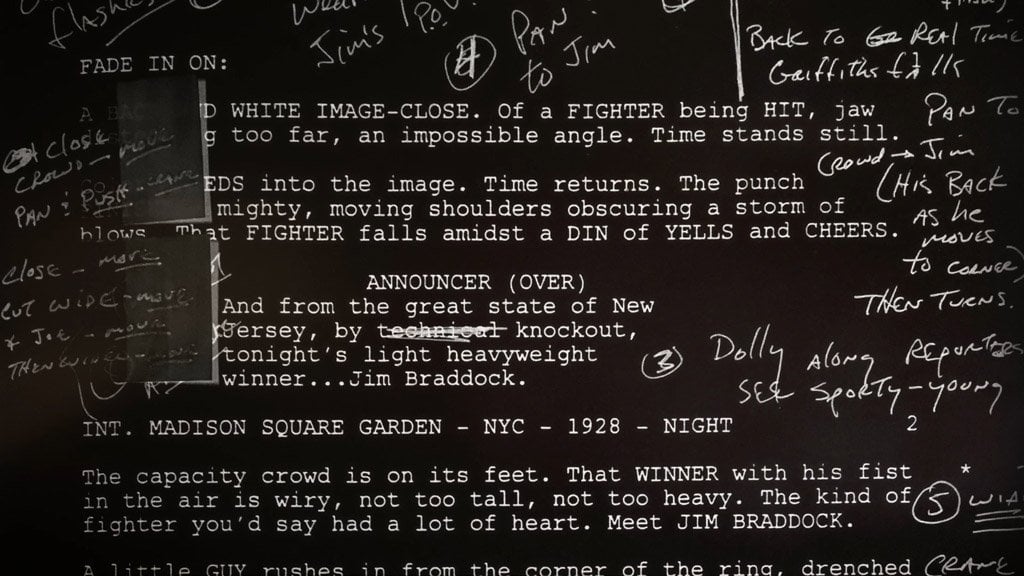 flashes
wear
Jim's P.O.V.
4 PAN
to Jim
BACK TO REAL TIME
Griffiths falls
FADE IN ON:
A BAC D WHITE IMAGE-CLOSE. Of a FIGHTER being HIT, jaw
g too far, an impossible angle. Time stands still.
PAN TO
Crowd → Jim
(HIS BACK
AS he
moves
to CORNER)
THEN TURNS.
CLOSE
CROWD - move
PAN & PUSH
EDS into the image. Time returns. The punch
mighty, moving shoulders obscuring a storm of
blows. That FIGHTER falls amidst a DIN of YELLS and CHEERS.
CLOSE - move
CUT WIDE - move
& JOE - move
THEN WIDER - move
ANNOUNCER (OVER)
And from the great state of New
Jersey, by technical knockout,
tonight's light heavyweight
winner...Jim Braddock.
3 Dolly ALONG REPORTERS
SEE SPORTY-YOUNG
INT. MADISON SQUARE GARDEN - NYC - 1928 - NIGHT
2
The capacity crowd is on its feet. That WINNER with his fist *
in the air is wiry, not too tall, not too heavy. The kind of
fighter you'd say had a lot of heart. Meet JIM BRADDOCK.
5
A little GUY rushes in from the corner of the ring, drenched
CRANE